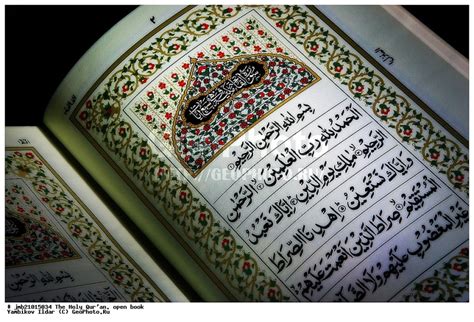 ٢
بِسْمِ اللَّهِ الرَّحْمَنِ الرَّحِيمِ
اَلْحَمْدُ لِلَّهِ رَبِّ الْعَالَمِينَ الرَّحْمَنِ
الرَّحِيمِ مَالِكِ يَوْمِ الدِّينِ إِيَّاكَ نَعْبُدُ
وَإِيَّاكَ نَسْتَعِينُ اِهْدِنَا الصِّرَاطَ
الْمُسْتَقِيمَ صِرَاطَ الَّذِينَ أَنْعَمْتَ عَلَيْهِمْ
الْمَغْضُوبِ عَلَيْهِمْ وَلَا
HTTP://GEOPHOTO.RU
# jmb21015034 The Holy Qur'an, open book
Yambikov Ildar (C) GeoPhoto.Ru